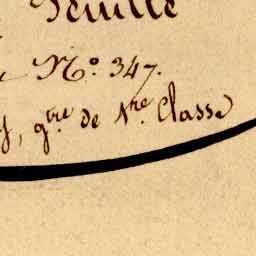 Feuille
Nº. 347.
gre. de 1re. Classe